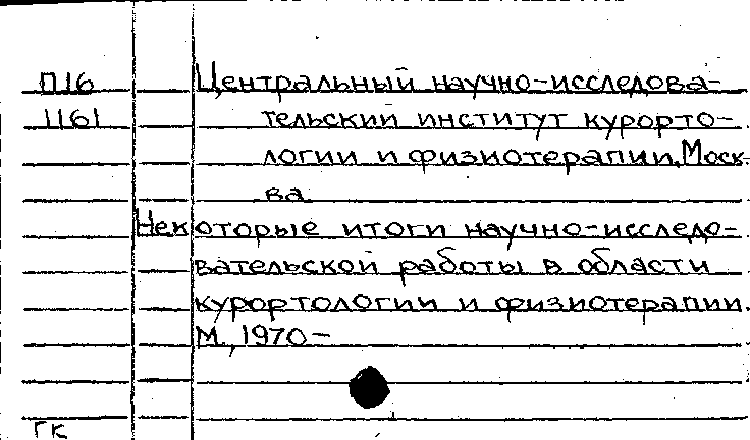 П16 Центральный научно-исследова-
1161 тельский институт курорто-
логии и физиотерапии. Моск-
ва
Некоторые итоги научно-исследо-
вательской работы в области
курортологии и физиотерапии.
М., 1970-
ГК